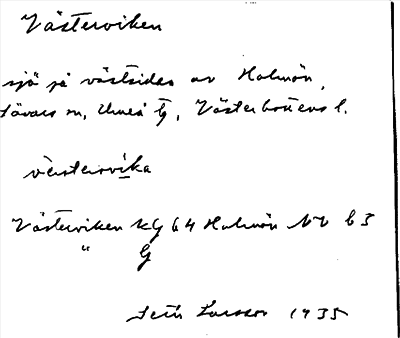 Västerviken
sjö på västsidan av Holmön,
Sävars sn, Umeå tg, Västerbottens l.
västərvika
Västerviken KG 64 Holmön NV b3
" G
Seth Larsson 1935